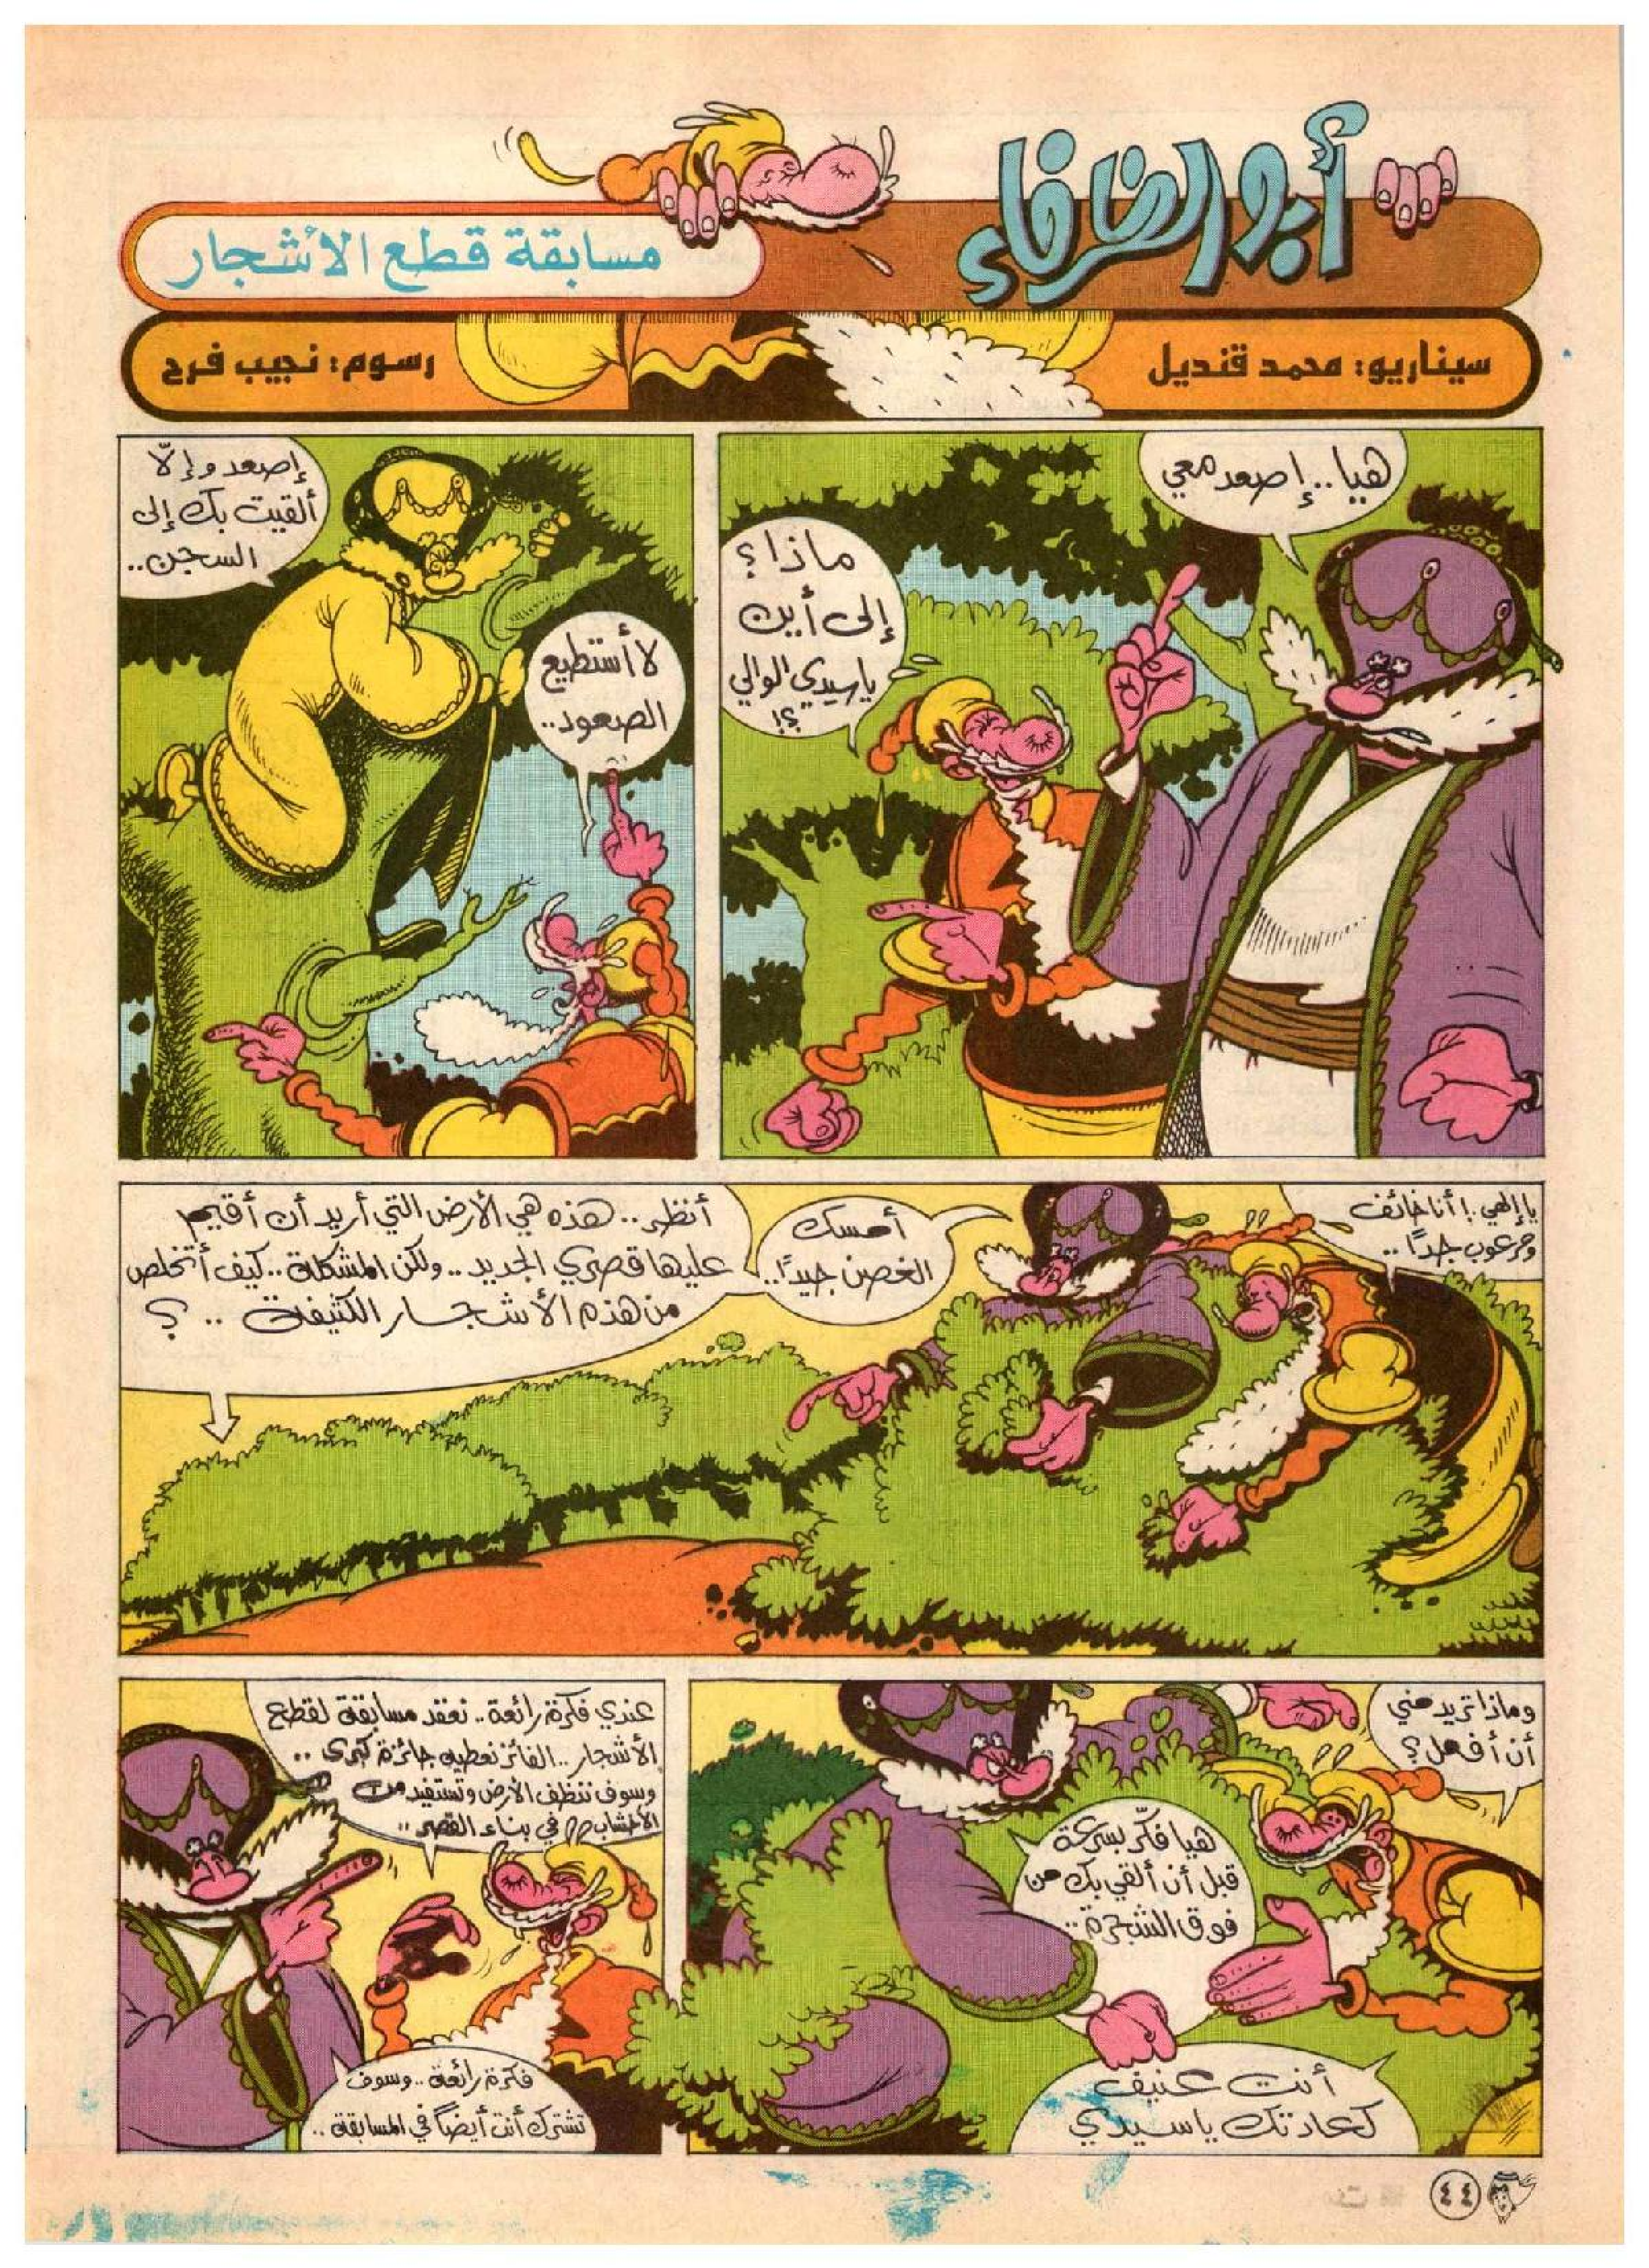 أبو الظرفاء
مسابقة قطع الأشجار
سيناريو: محمد قنديل
رسوم: نجيب فرح
هيا.. إصعد معي
ماذا؟
إلى أين
يا سيدي الوالي
؟!
إصعد وإلّا
ألقيت بك إلى
السجن..
لا أستطيع
الصعود..
يا إلهي.! أنا خائف
ومرعوب جداً..
أمسك
الغصن جيداً..
أنظر.. هذه هي الأرض التي أريد أن أقيم
عليها قصري الجديد.. ولكن المشكلة.. كيف أتخلص
من هذه الأشجار الكثيفة .. ؟
وماذا تريد مني
أن أفعل؟
هيا فكّر بسرعة
قبل أن ألقي بك من
فوق الشجرة..
أنت عنيف
كعادتك يا سيدي
عندي فكرة رائعة.. نعقد مسابقة لقطع
الأشجار.. الفائز نعطيه جائزة كبرى ..
وسوف ننظف الأرض وتستفيد من
الأخشاب في بناء القصر ..
فكرة رائعة.. وسوف
تشترك أنت أيضاً في المسابقة..
٤٤